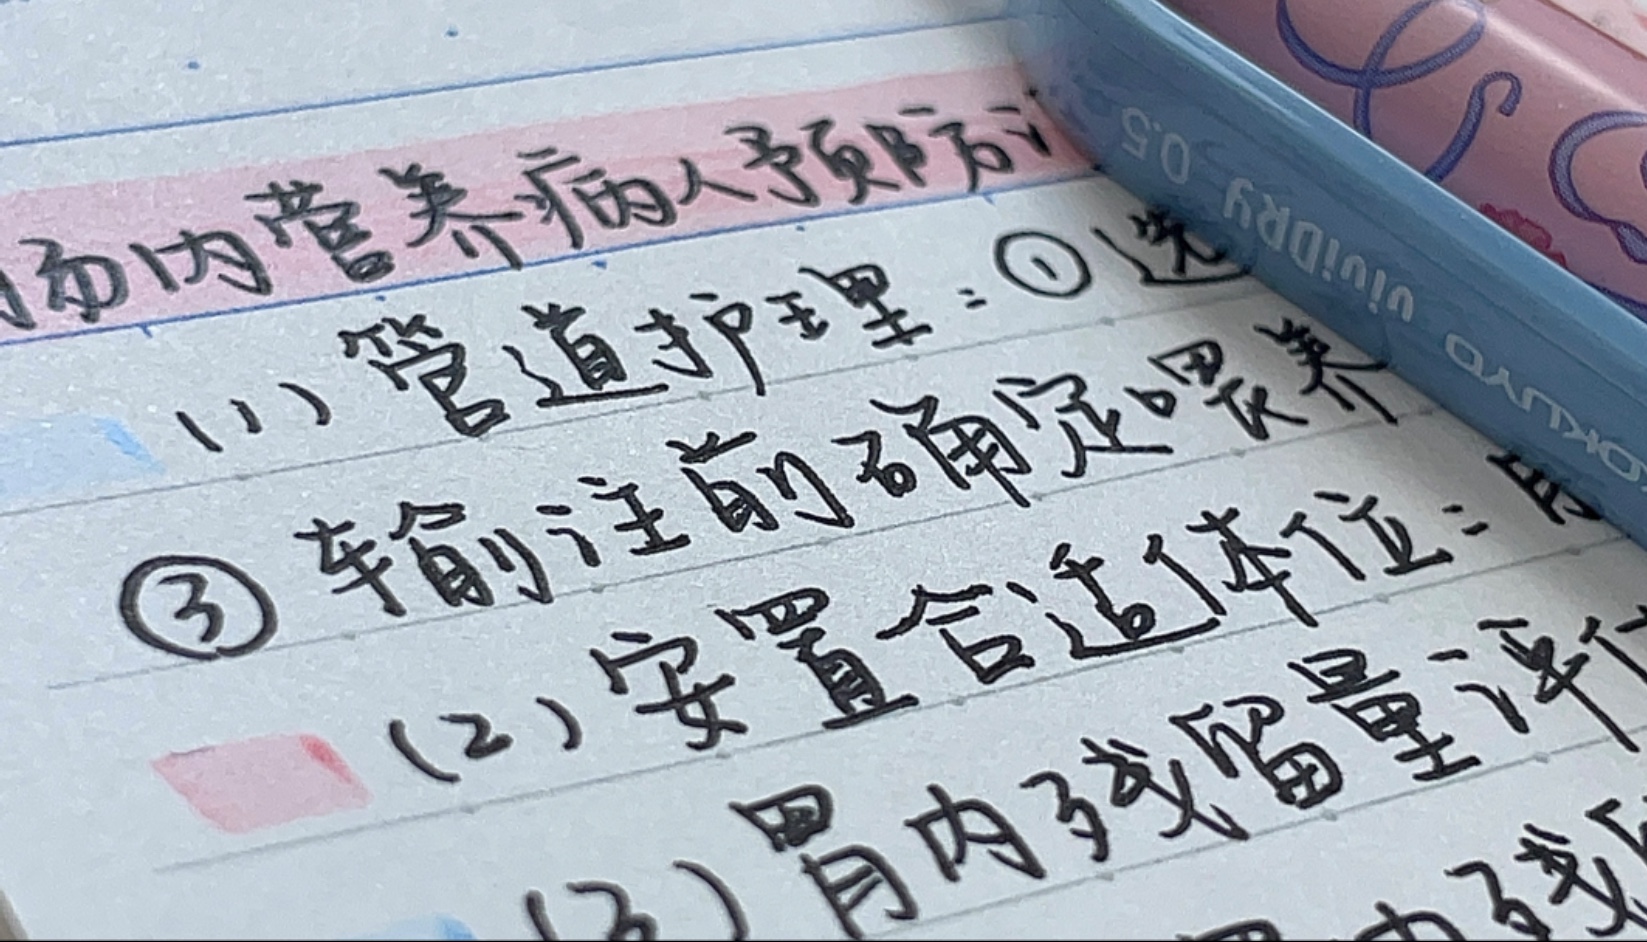 肠内营养病人预防
(1)管道护理：①选
③输注前确定喂养
(2)安置合适体位：
(3)胃内残留量评估
内残
KOKUYO viviDRY 0.5